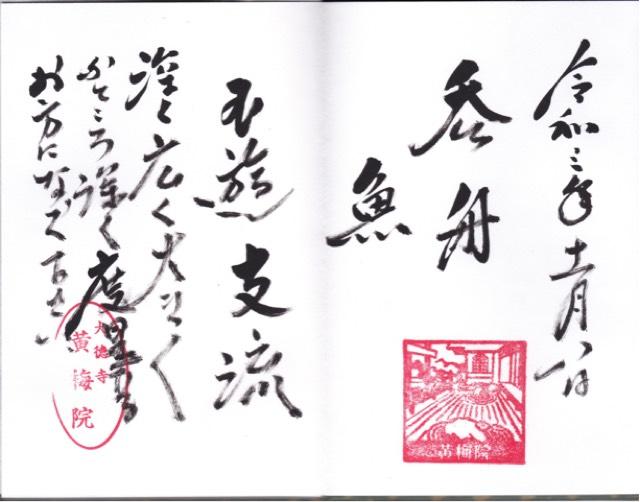 令和三年十一月八日
呑舟
魚
不遊支流
深く広く大きく
ふところ深く度量ある
お方になって下さい
大徳寺
黄梅院
黄梅院